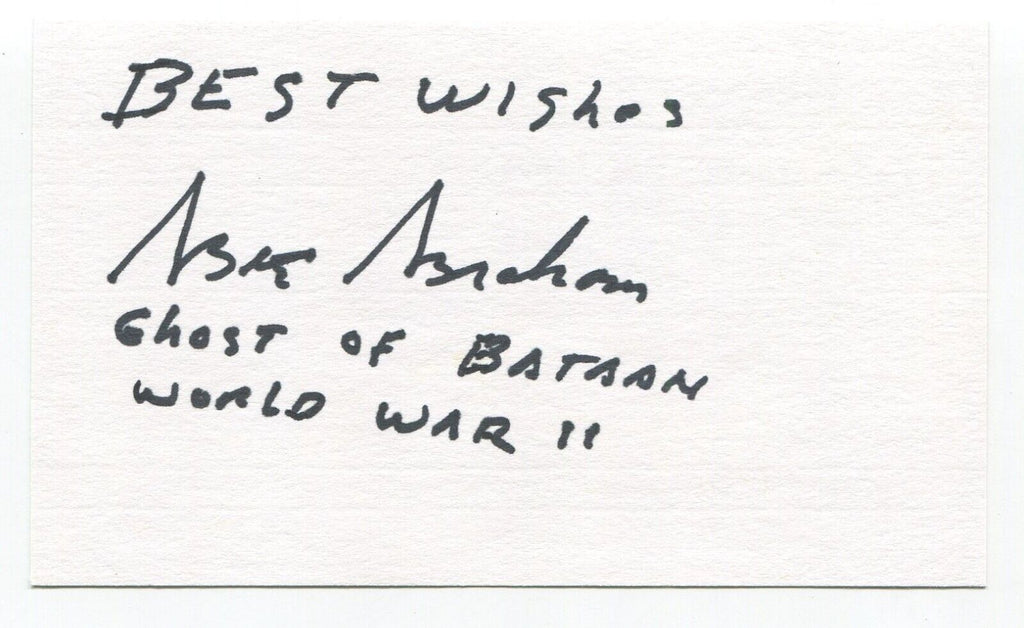 BEST WISHES
ABE ABRAHAM
GHOST OF BATAAN
WORLD WAR II